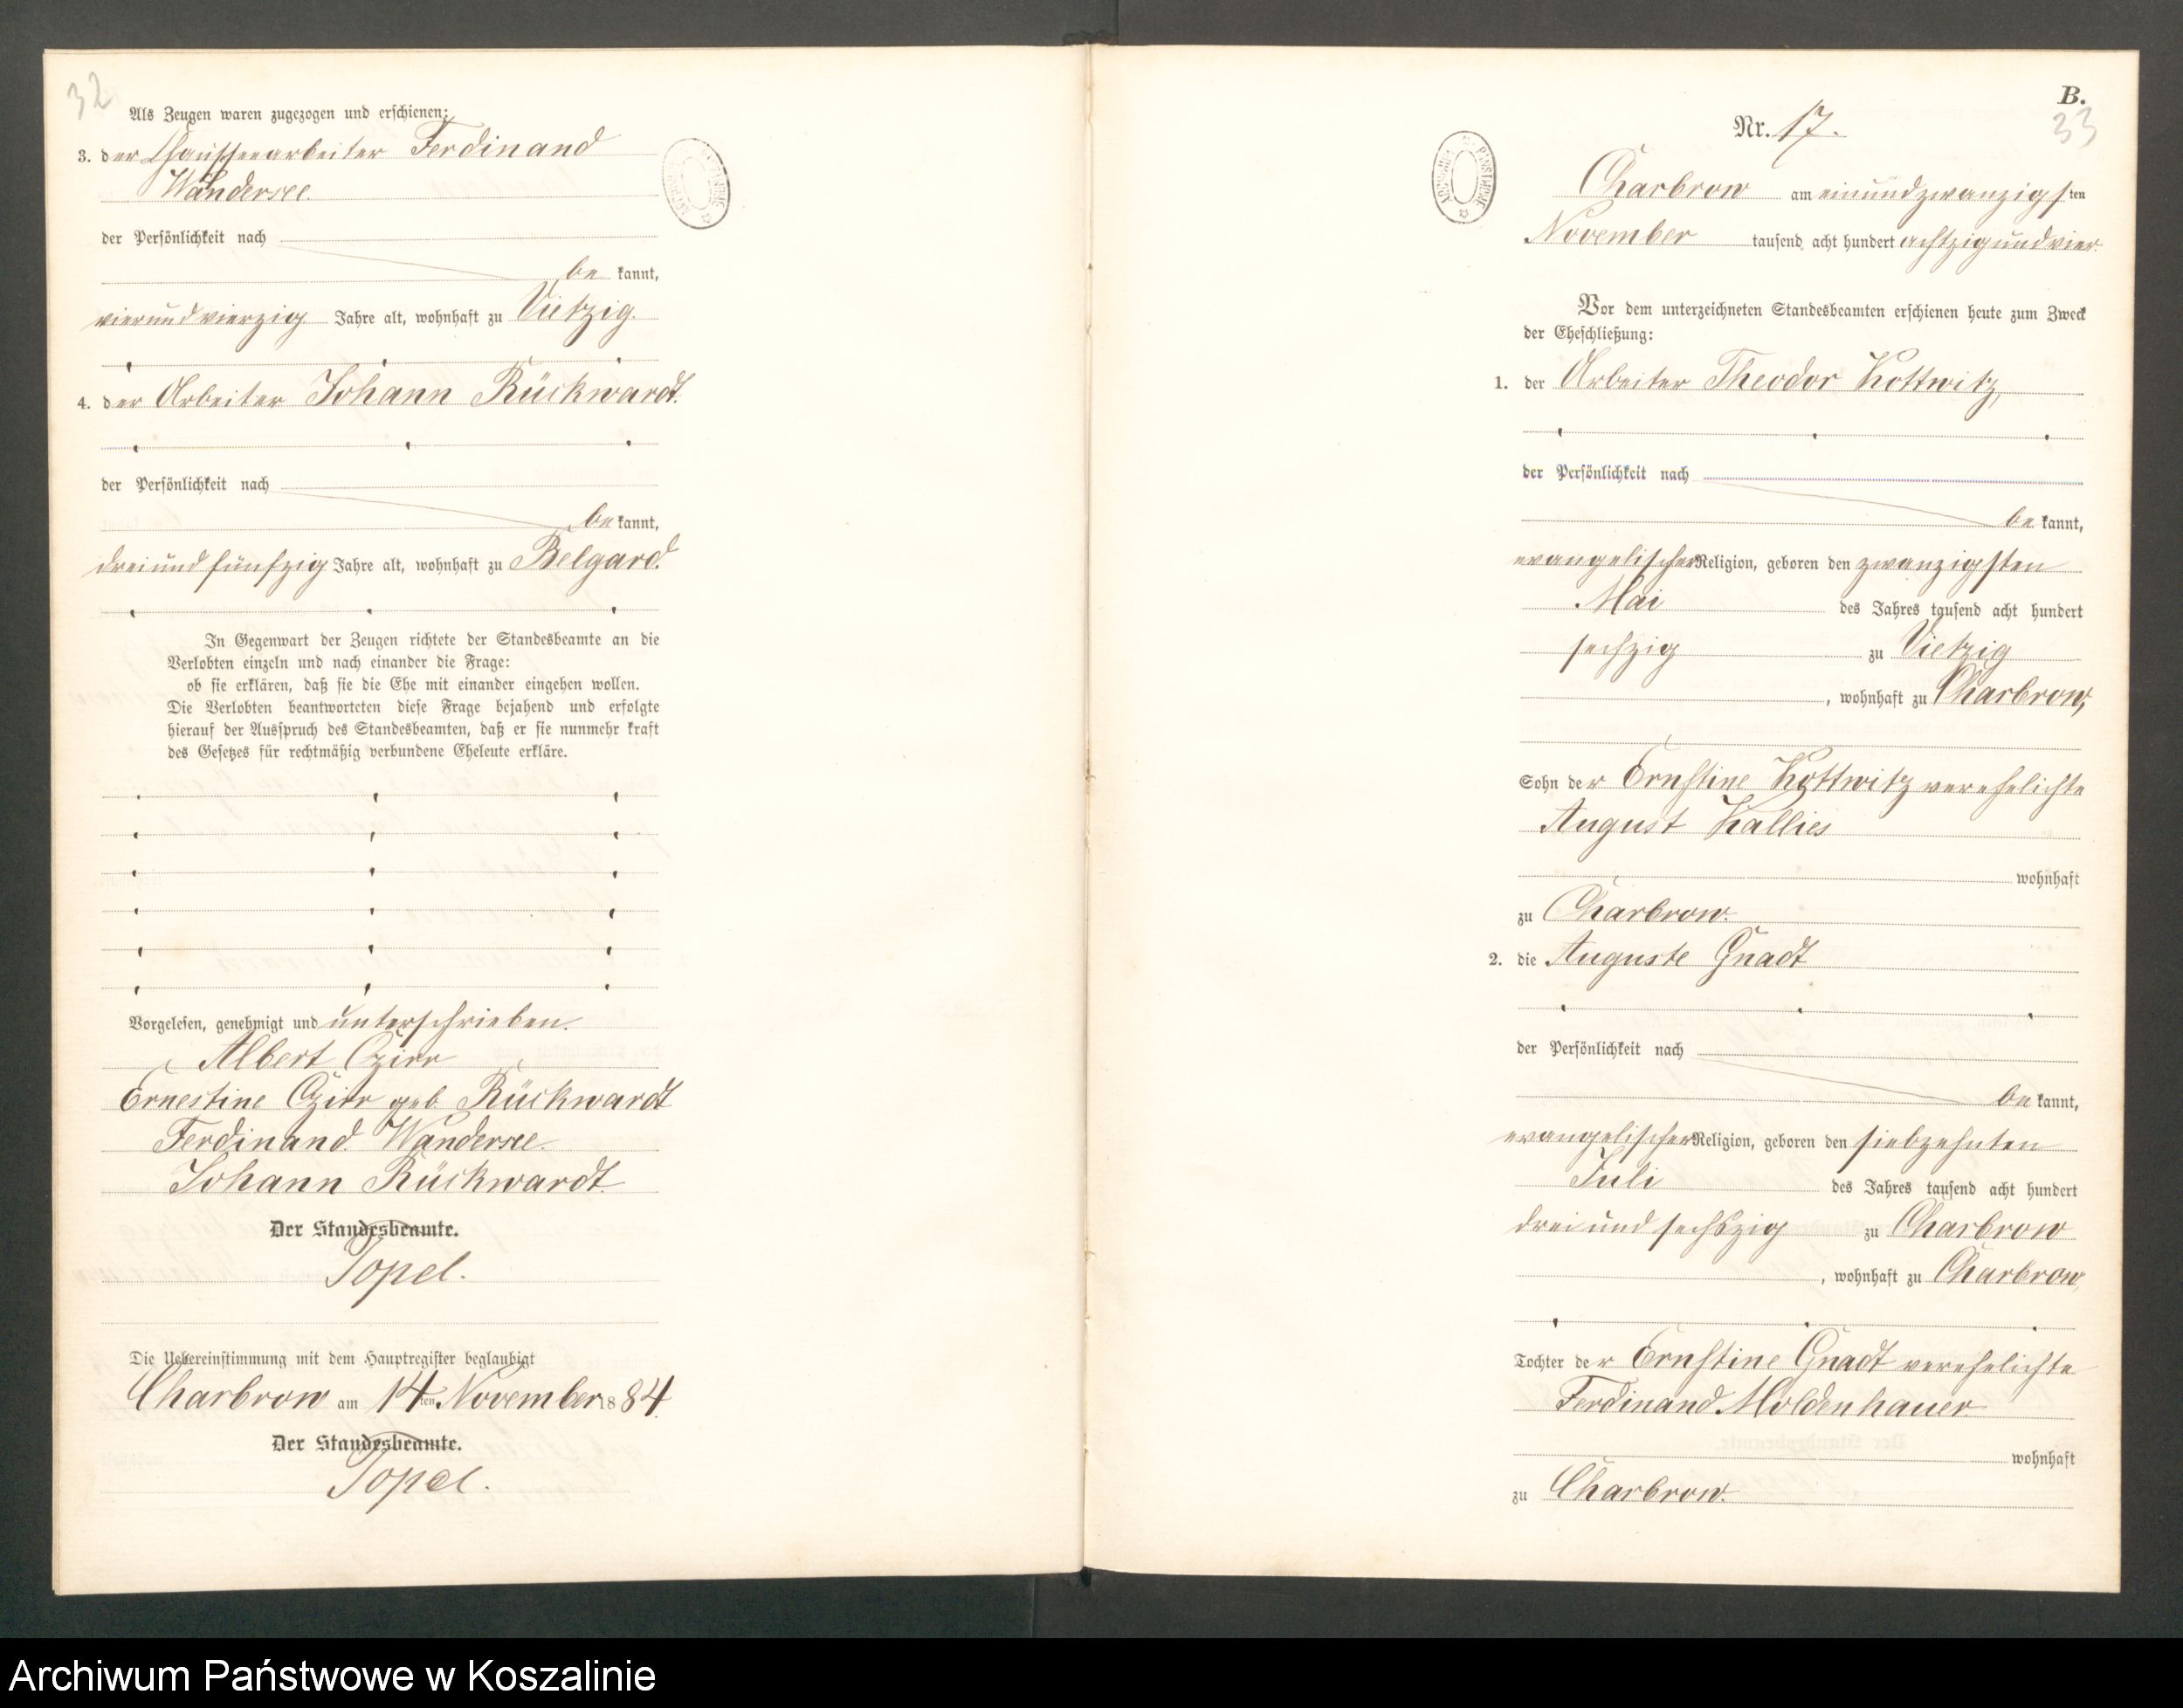 32
Als Zeugen waren zugezogen und erschienen:
3. der Chausseearbeiter Ferdinand
Wandersee.
der Persönlichkeit nach
be kannt,
vierundvierzig Jahre alt, wohnhaft zu Vietzig.
4. der Arbeiter Johann Rückwardt.
der Persönlichkeit nach
be kannt,
dreiundfünfzig Jahre alt, wohnhaft zu Belgard.
In Gegenwart der Zeugen richtete der Standesbeamte an die
Verlobten einzeln und nach einander die Frage:
ob sie erklären, daß sie die Ehe mit einander eingehen wollen.
Die Verlobten beantworteten diese Frage bejahend und erfolgte
hierauf der Ausspruch des Standesbeamten, daß er sie nunmehr kraft
des Gesetzes für rechtmäßig verbundene Eheleute erkläre.
Vorgelesen, genehmigt und unterschrieben.
Albert Czirr
Ernestine Czirr geb. Rückwardt
Ferdinand Wandersee.
Johann Rückwardt.
Der Standesbeamte.
Topel.
Die Uebereinstimmung mit dem Hauptregister beglaubigt
Charbrow am 14ten November 1884.
Der Standesbeamte.
Topel.
B.
33
Nr. 17.
Charbrow am einundzwanzigsten
November tausend acht hundert achtzigundvier.
Vor dem unterzeichneten Standesbeamten erschienen heute zum Zweck
der Eheschließung:
1. der Arbeiter Theodor Kottwitz,
der Persönlichkeit nach
be kannt,
evangelischer Religion, geboren den zwanzigsten
Mai des Jahres tausend acht hundert
sechzig zu Vietzig
, wohnhaft zu Charbrow,
Sohn der Ernstine Kottwitz verehelichte
August Kallies
wohnhaft
zu Charbrow.
2. die Auguste Gnadt
der Persönlichkeit nach
be kannt,
evangelischer Religion, geboren den siebzehnten
Juli des Jahres tausend acht hundert
drei und sechszig zu Charbrow
, wohnhaft zu Charbrow,
Tochter der Ernstine Gnadt verehelichte
Ferdinand Moldenhauer
wohnhaft
zu Charbrow.
Archiwum Państwowe w Koszalinie